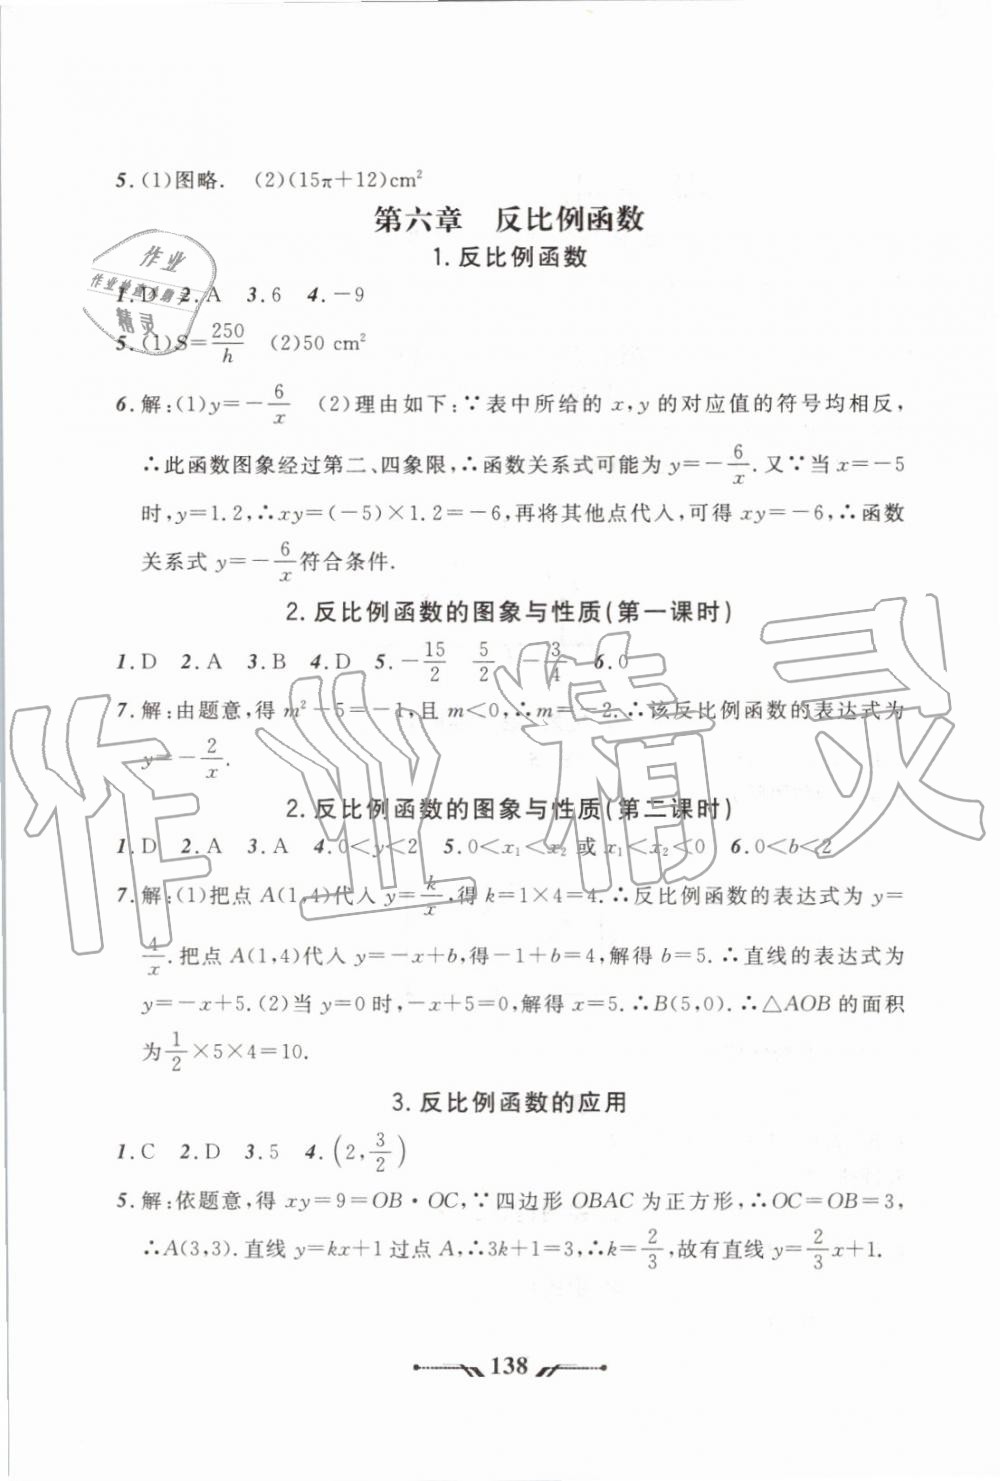 5.(1)图略. (2)(15π+12)cm²
第六章 反比例函数
1.反比例函数
1.D 2.A 3.6 4.-9
5.(1)S=250/h (2)50 cm²
6.解:(1)y=-6/x (2)理由如下:∵表中所给的 x,y 的对应值的符号均相反,
∴此函数图象经过第二、四象限,∴函数关系式可能为 y=-6/x.又∵当 x=-5
时,y=1.2,∴xy=(-5)×1.2=-6,再将其他点代入,可得 xy=-6,∴函数
关系式 y=-6/x符合条件.
2.反比例函数的图象与性质(第一课时)
1.D 2.A 3.B 4.D 5.-15/2 5/2 -3/4 6.0
7.解:由题意,得 m²-5=-1,且 m<0,∴m=-2.∴该反比例函数的表达式为
y=-2/x.
2.反比例函数的图象与性质(第二课时)
1.D 2.A 3.A 4.0<y<2 5.0<x₁<x₂ 或 x₁<x₂<0 6.0<b<2
7.解:(1)把点 A(1,4)代入 y=k/x,得 k=1×4=4.∴反比例函数的表达式为 y=
4/x.把点 A(1,4)代入 y=-x+b,得-1+b=4,解得 b=5.∴直线的表达式为
y=-x+5.(2)当 y=0 时,-x+5=0,解得 x=5.∴B(5,0).∴△AOB 的面积
为1/2×5×4=10.
3.反比例函数的应用
1.C 2.D 3.5 4.(2,3/2)
5.解:依题意,得 xy=9=OB·OC,∵四边形 OBAC 为正方形,∴OC=OB=3,
∴A(3,3).直线 y=kx+1 过点 A,∴3k+1=3,∴k=2/3,故有直线 y=2/3x+1.
138
作业
作业检查小助手
精灵
作业精灵